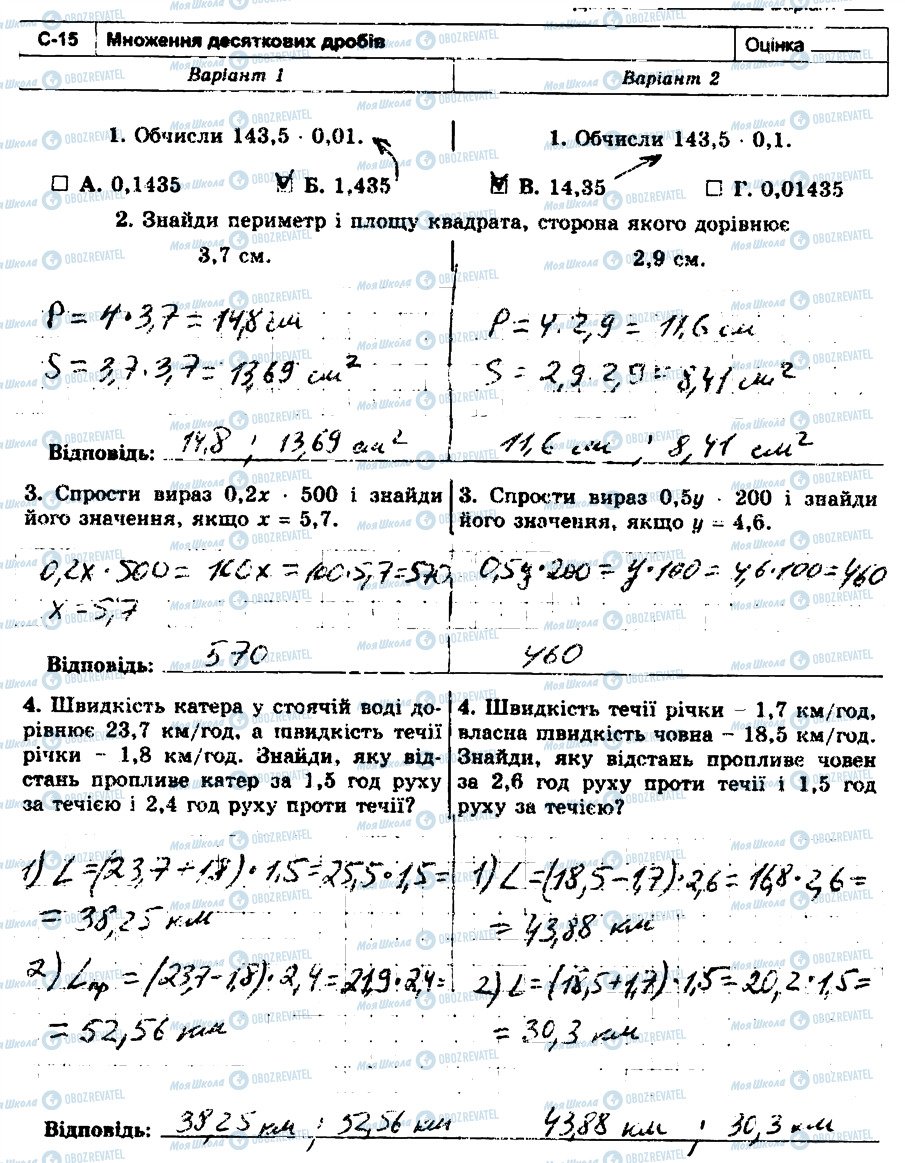 С-15 Множення десяткових дробів Оцінка
Варіант 1 Варіант 2
1. Обчисли 143,5 · 0,01. 1. Обчисли 143,5 · 0,1.
А. 0,1435 Б. 1,435 В. 14,35 Г. 0,01435
2. Знайди периметр і площу квадрата, сторона якого дорівнює
3,7 см. 2,9 см.
P = 4 · 3,7 = 14,8 см
S = 3,7 · 3,7 = 13,69 см²
P = 4 · 2,9 = 11,6 см
S = 2,9 · 2,9 = 8,41 см²
Відповідь: 14,8 ; 13,69 см² 11,6 см ; 8,41 см²
3. Спрости вираз 0,2x · 500 і знайди
його значення, якщо x = 5,7.
0,2x · 500 = 100x = 100 · 5,7 = 570
x = 5,7
Відповідь: 570
3. Спрости вираз 0,5y · 200 і знайди
його значення, якщо y = 4,6.
0,5y · 200 = y · 100 = 4,6 · 100 = 460
460
4. Швидкість катера у стоячій воді до-
рівнює 23,7 км/год, а швидкість течії
річки – 1,8 км/год. Знайди, яку від-
стань пропливе катер за 1,5 год руху
за течією і 2,4 год руху проти течії?
1) L = (23,7 + 1,8) · 1,5 = 25,5 · 1,5 =
= 38,25 км
2) Lпр = (23,7 - 1,8) · 2,4 = 21,9 · 2,4 =
= 52,56 км
Відповідь: 38,25 км ; 52,56 км
4. Швидкість течії річки – 1,7 км/год,
власна швидкість човна – 18,5 км/год.
Знайди, яку відстань пропливе човен
за 2,6 год руху проти течії і 1,5 год
руху за течією?
1) L = (18,5 - 1,7) · 2,6 = 16,8 · 2,6 =
= 43,88 км
2) L = (18,5 + 1,7) · 1,5 = 20,2 · 1,5 =
= 30,3 км
43,88 км ; 30,3 км
Моя Школа OBOZREVATEL